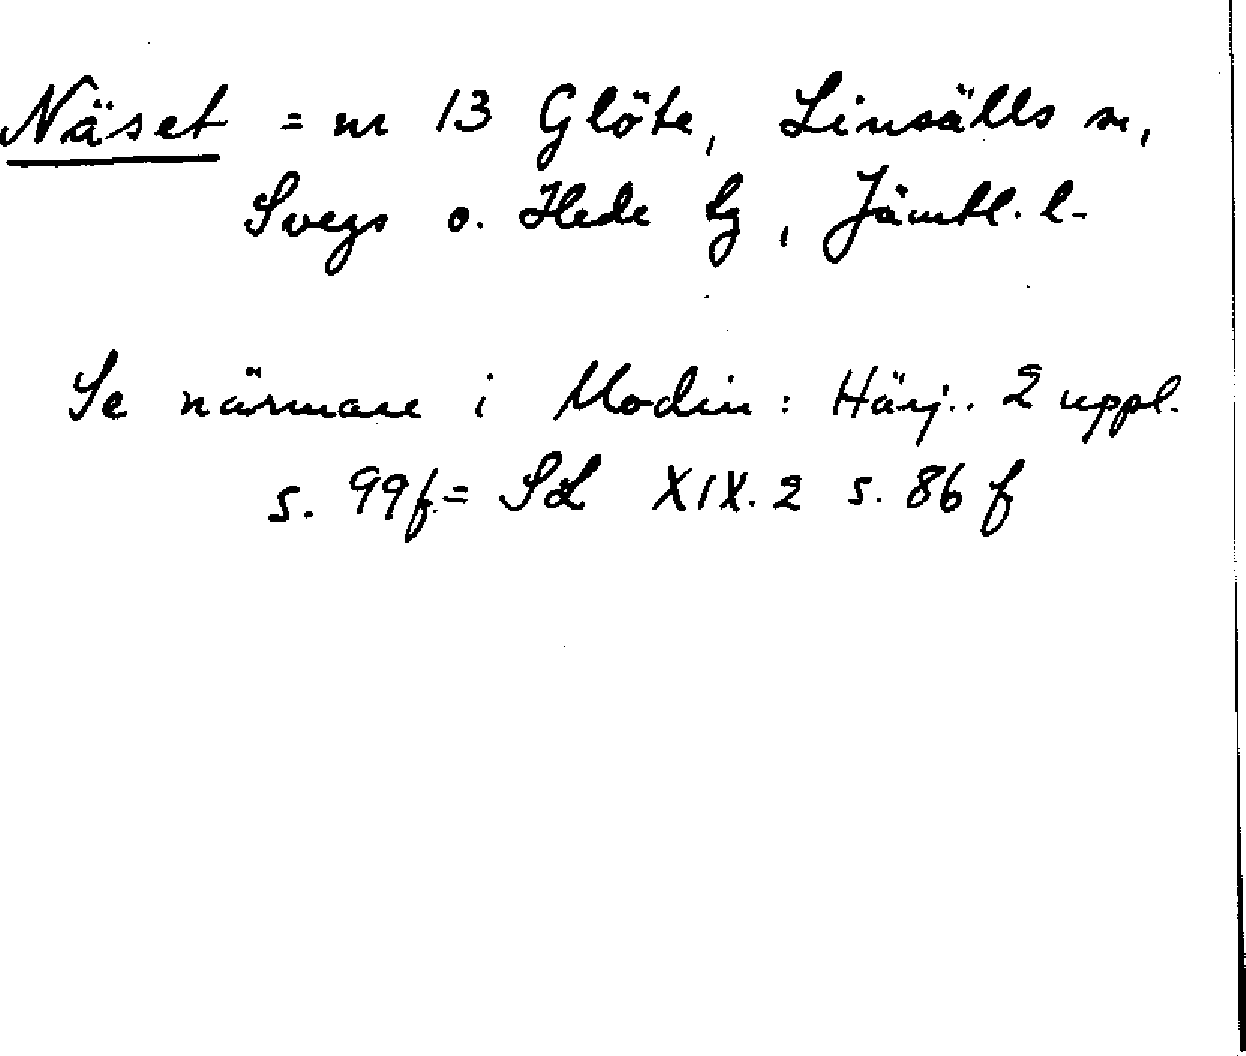 Näset = nr 13 Glöte, Linsälls sn,
Svegs o. Hede tg, Jämtl. l.
Se närmare i Modin: Härj.. 2 uppl.
s. 99f = SL XIX. 2 s. 86 f